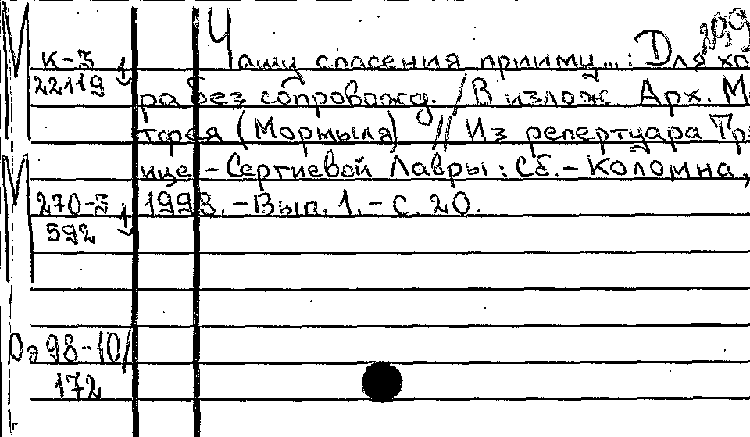 Чашу спасения прииму...: Для хо
К-3
22119
ра без сопровожд. / В излож. Арх. М
тфея (Мормыля) // Из репертуара Тро
ице-Сергиевой Лавры: Сб. - Коломна,
270-3
592
1998. - Вып. 1. - С. 20.
98-10/
172